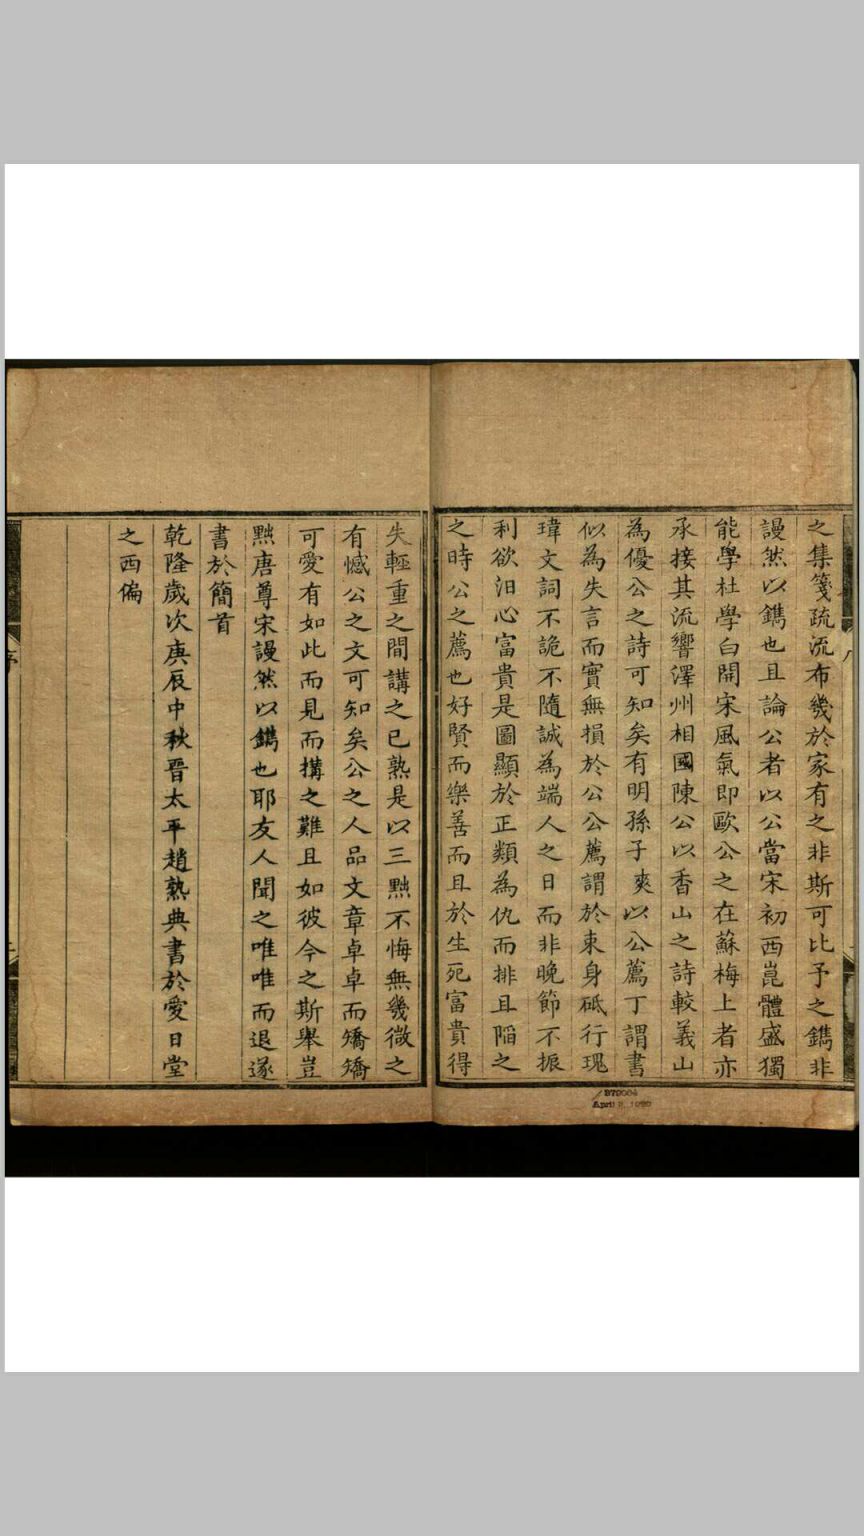 之集箋疏流布幾於家有之非斯可比予之鐫非
謾然以鐫也且論公者以公當宋初西崑體盛獨
能學杜學白開宋風氣即歐公之在蘇梅上者亦
承接其流響澤州相國陳公以香山之詩較義山
為優公之詩可知矣有明孫子爽以公薦丁謂書
似為失言而實無損於公公薦謂於束身砥行瑰
瑋文詞不詭不隨誠為端人之日而非晚節不振
利欲汨心富貴是圖顯於正類為仇而排且陷之
之時公之薦也好賢而樂善而且於生死富貴得
失輕重之間講之已熟是以三黜不悔無幾微之
有憾公之文可知矣公之人品文章卓卓而矯矯
可愛有如此而見而搆之難且如彼今之斯舉豈
黜唐尊宋謾然以鐫也耶友人聞之唯唯而退遂
書於簡首
乾隆歲次庚辰中秋晋太平趙熟典書於愛日堂
之西偏
序
April